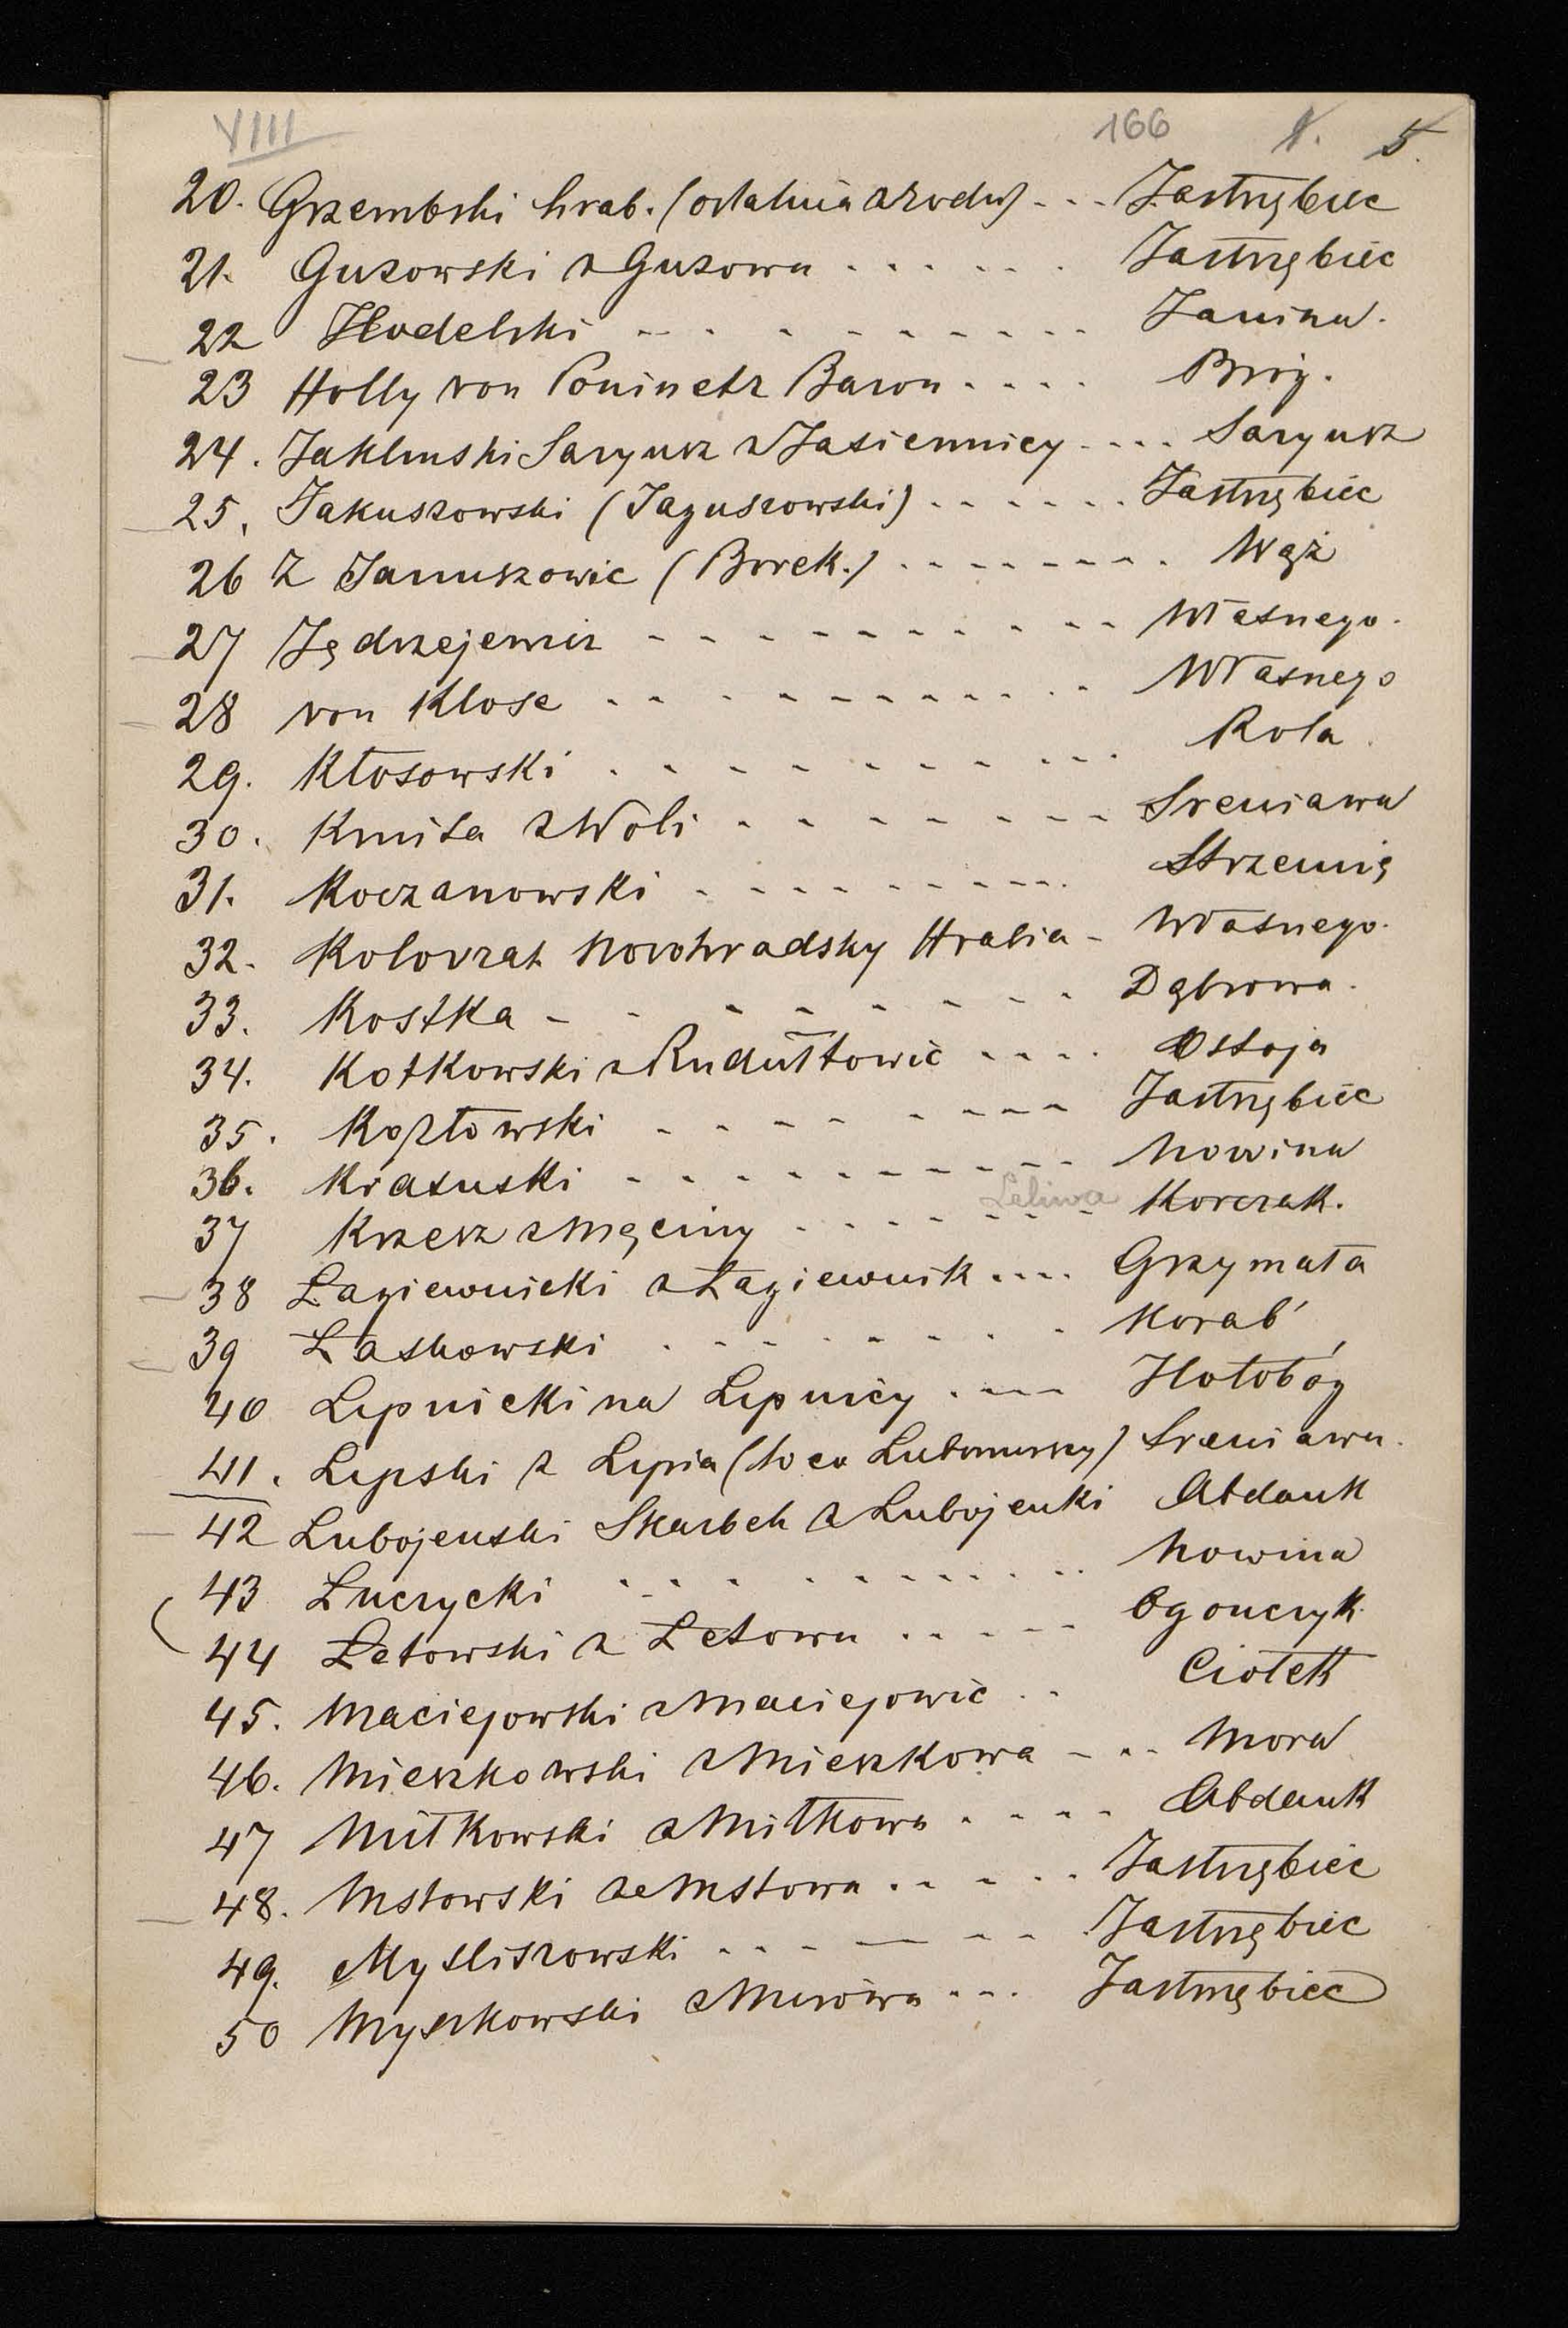 VIII 166 1. 5.
20. Grzembski hrab. (ostatnia z rodu) - - - Jastrzębiec
21. Guzowski z Guzowa . . . . . . Jastrzębiec
22 Hodelski - - - - - - - - - Janina.
23 Holly von Poninetz Baron . . . . Bróg.
24. Jaklinski Saryusz z Jasiennicy - - - . Saryusz
25. Jakuszowski (Jaguszowski) . . . . . . Jastrzębiec
26 Z Januszowic (Borek.) . - - - - - - . Wąż
27 Jędrzejewicz - - - - - - - - - - Własnego.
28 von Klose - - - - - - - - - - Własnego
29. Kłosowski . - - - - - - - - . Rola
30. Kmita z Woli - - - - - - - - Sreniawa
31. Koczanowski - - - - - - - - - . Strzemię
32. Kolovrat Novohradsky Hrabia - Własnego.
33. Kostka - - - - - - - - Dąbrowa.
34. Kotkowski z Rudułtowic - - - . Ostoja
35. Kozłowski - - - - - - - - Jastrzębiec
36. Krasuski - - - - - - - - - - Nowina
37 Krzesz z Męciny - - - - - Leliwa - Korczak.
38 Łagiewnicki z Łagiewnik . - - . Grzymała
39 Laskowski . - - - - - - - Korab'
40 Lipnicki na Lipnicy . - - - Hołobóg
41. Lipski z Lipia (to co Lubomirscy) Sreniawa.
42 Lubojenski Skarbek z Lubojenki Abdank
43 Luczycki - - - - - - - - - . . Nowina
44 Łetowski z Łetowa . . - - - Ogonczyk
45. Maciejowski z Maciejowic . . Ciołek
46. Mieszkowski z Mieszkowa - - - Mora
47 Miłkowski z Miłkowa . - - - Abdank
48. Mstowski ze Mstowa . . - . . Jastrzębiec
49. Mysliszowski . - - - — - - Jastrzębiec
50 Myszkowski z Mirowa - - . Jastrzębiec